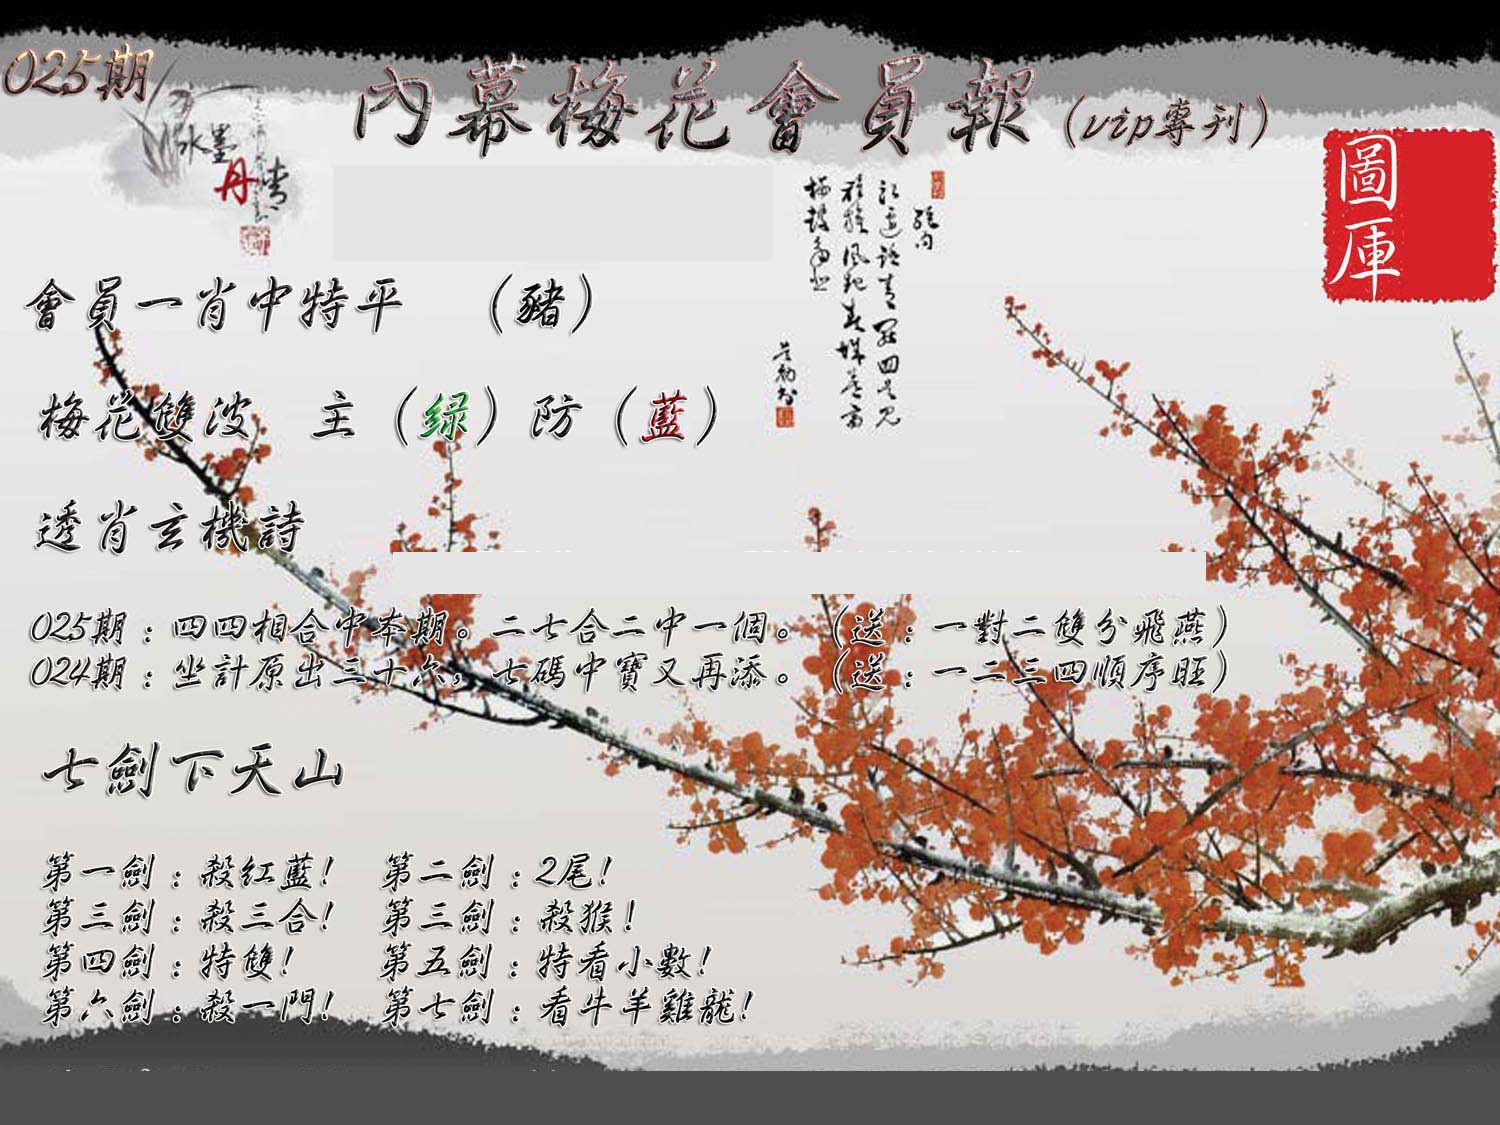 025期
內幕梅花會員報(vip專刊)
水墨
丹情
圖庫
會員一肖中特平 (豬)
梅花雙波 主(绿)防(藍)
透肖玄機詩
025期:四四相合中本期。二七合二中一個。(送:一對二雙分飛燕)
024期:坐計原出三十六,七碼中寶又再添。(送:一二三四順序旺)
七劍下天山
第一劍:殺紅藍! 第二劍:2尾!
第三劍:殺三合! 第三劍:殺猴!
第四劍:特雙! 第五劍:特看小數!
第六劍:殺一門! 第七劍:看牛羊雞龍!